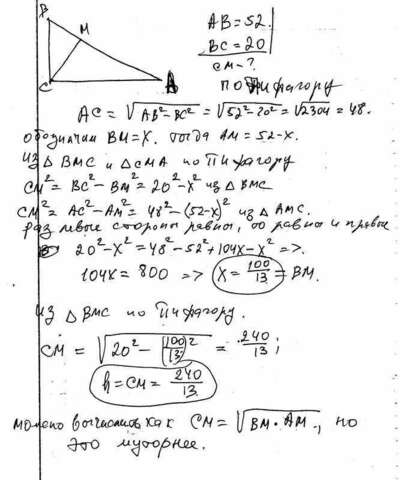 B
M
C
A
AB=52
BC=20
CM-?
по Пифагору
AC = √(AB² - BC²) = √(52² - 20²) = √2304 = 48.
обозначим BM=X. тогда AM = 52-X.
из △ BMC и △ CMA по Пифагору
CM² = BC² - BM² = 20² - X² из △ BMC
CM² = AC² - AM² = 48² - (52-X)² из △ AMC.
раз левые стороны равны, то равны и правые
20² - X² = 48² - 52² + 104X - X² =>.
104X = 800 => X = 100/13 = BM.
из △ BMC по Пифагору.
CM = √(20² - (100/13)²) = 240/13;
h = CM = 240/13.
можно вычислить как CM = √(BM · AM), но
это муторнее.